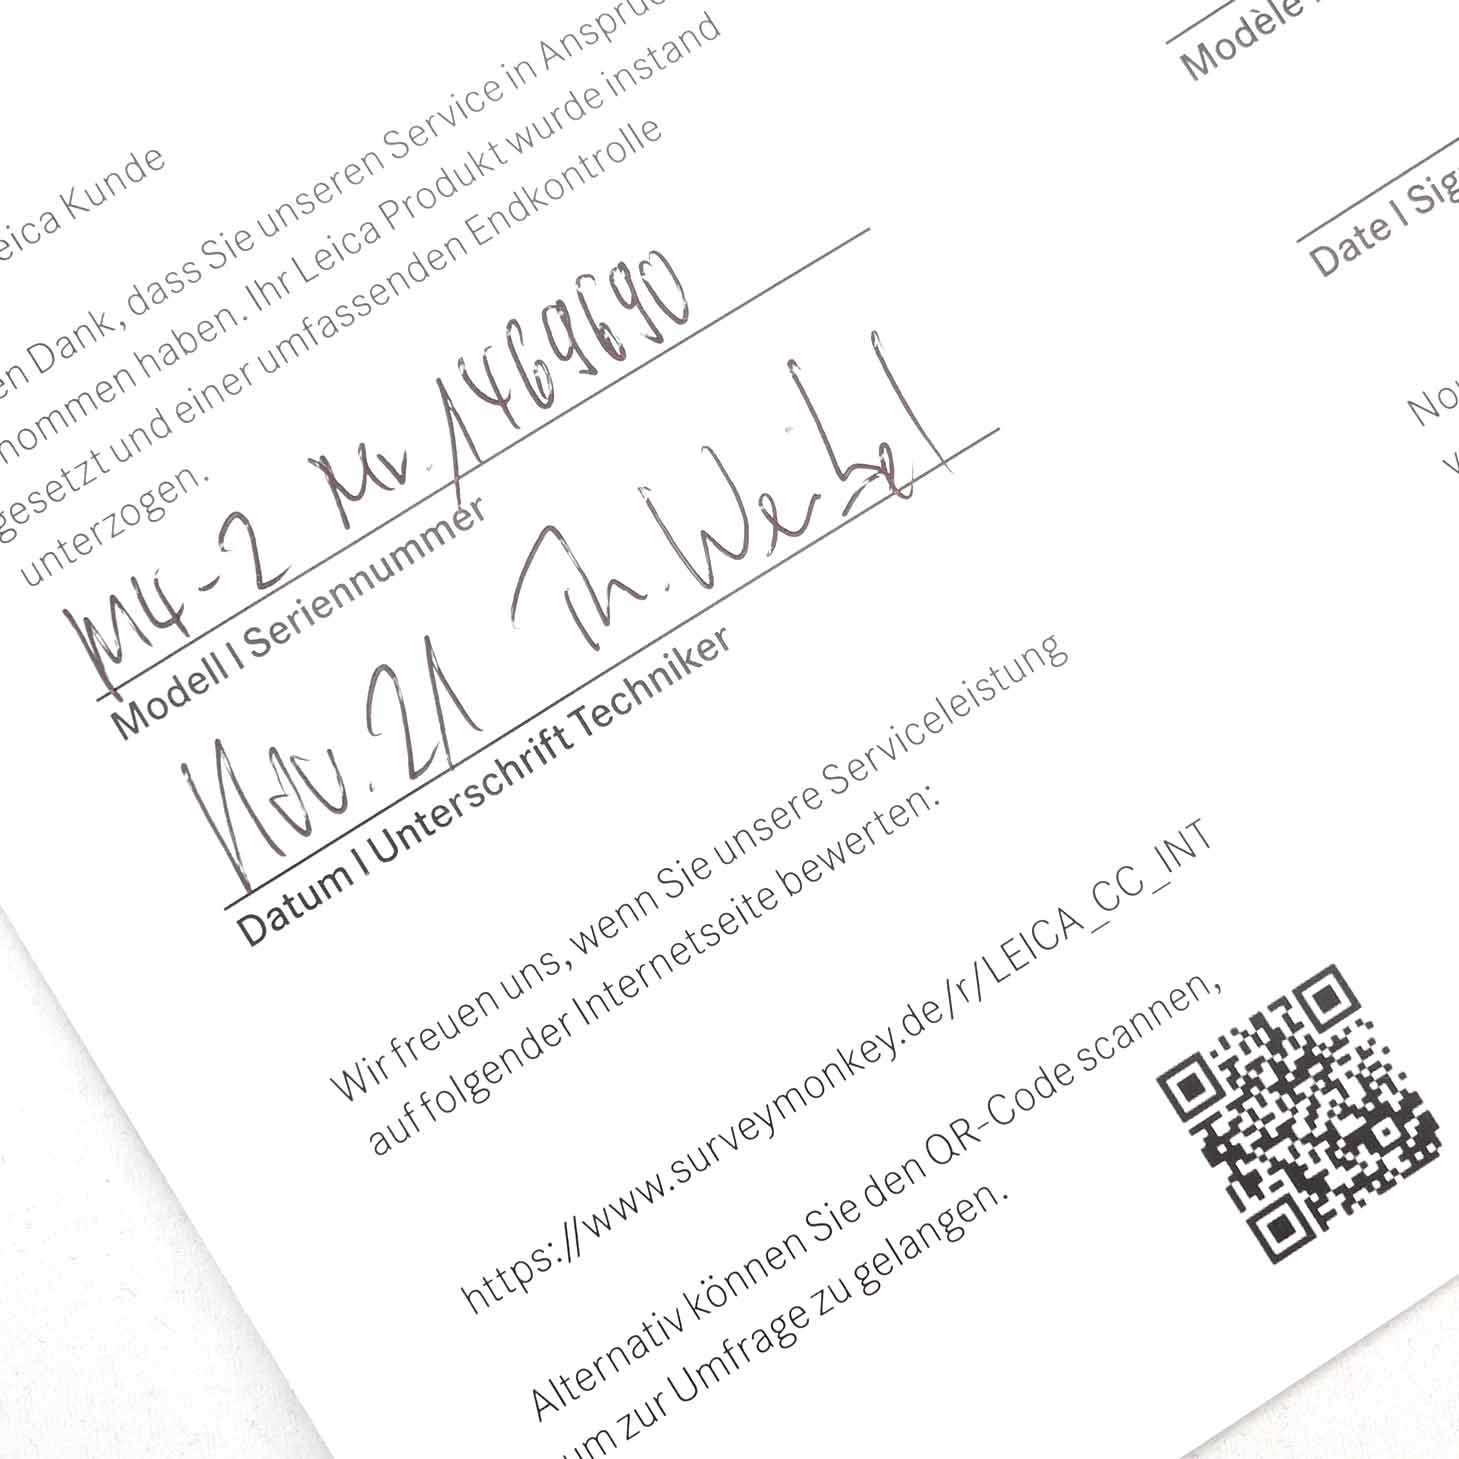 eica Kunde
en Dank, dass Sie unseren Service in Anspruc
nommen haben. Ihr Leica Produkt wurde instand
gesetzt und einer umfassenden Endkontrolle
unterzogen.
M4-2 Nr. 1469690
Modell | Seriennummer
Nov. 21 Th. Weihel
Datum | Unterschrift Techniker
Wir freuen uns, wenn Sie unsere Serviceleistung
auf folgender Internetseite bewerten:
https://www.surveymonkey.de/r/LEICA_CC_INT
Alternativ können Sie den QR-Code scannen,
um zur Umfrage zu gelangen.
Modèle
Date | Sig
No